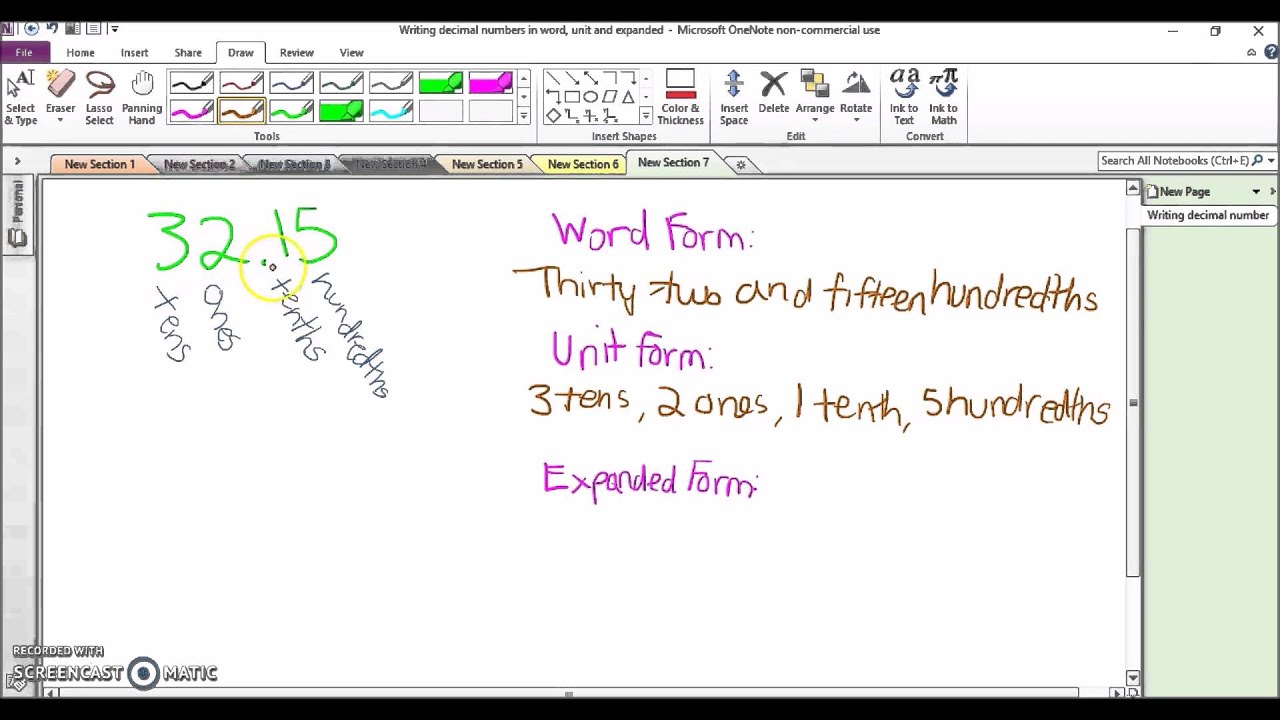 Writing decimal numbers in word, unit and expanded - Microsoft OneNote non-commercial use
File Home Insert Share Draw Review View
Select & Type Eraser Lasso Select Panning Hand Color & Thickness Insert Space Delete Arrange Rotate Ink to Text Ink to Math
Tools Insert Shapes Edit Convert
New Section 1 New Section 2 New Section 3 New Section 4 New Section 5 New Section 6 New Section 7 Search All Notebooks (Ctrl+E)
Personal
New Page
Writing decimal number
32.15
tens ones tenths hundredths
Word Form:
Thirty-two and fifteen hundredths
Unit form:
3 tens, 2 ones, 1 tenth, 5 hundredths
Expanded Form:
RECORDED WITH
SCREENCAST MATIC